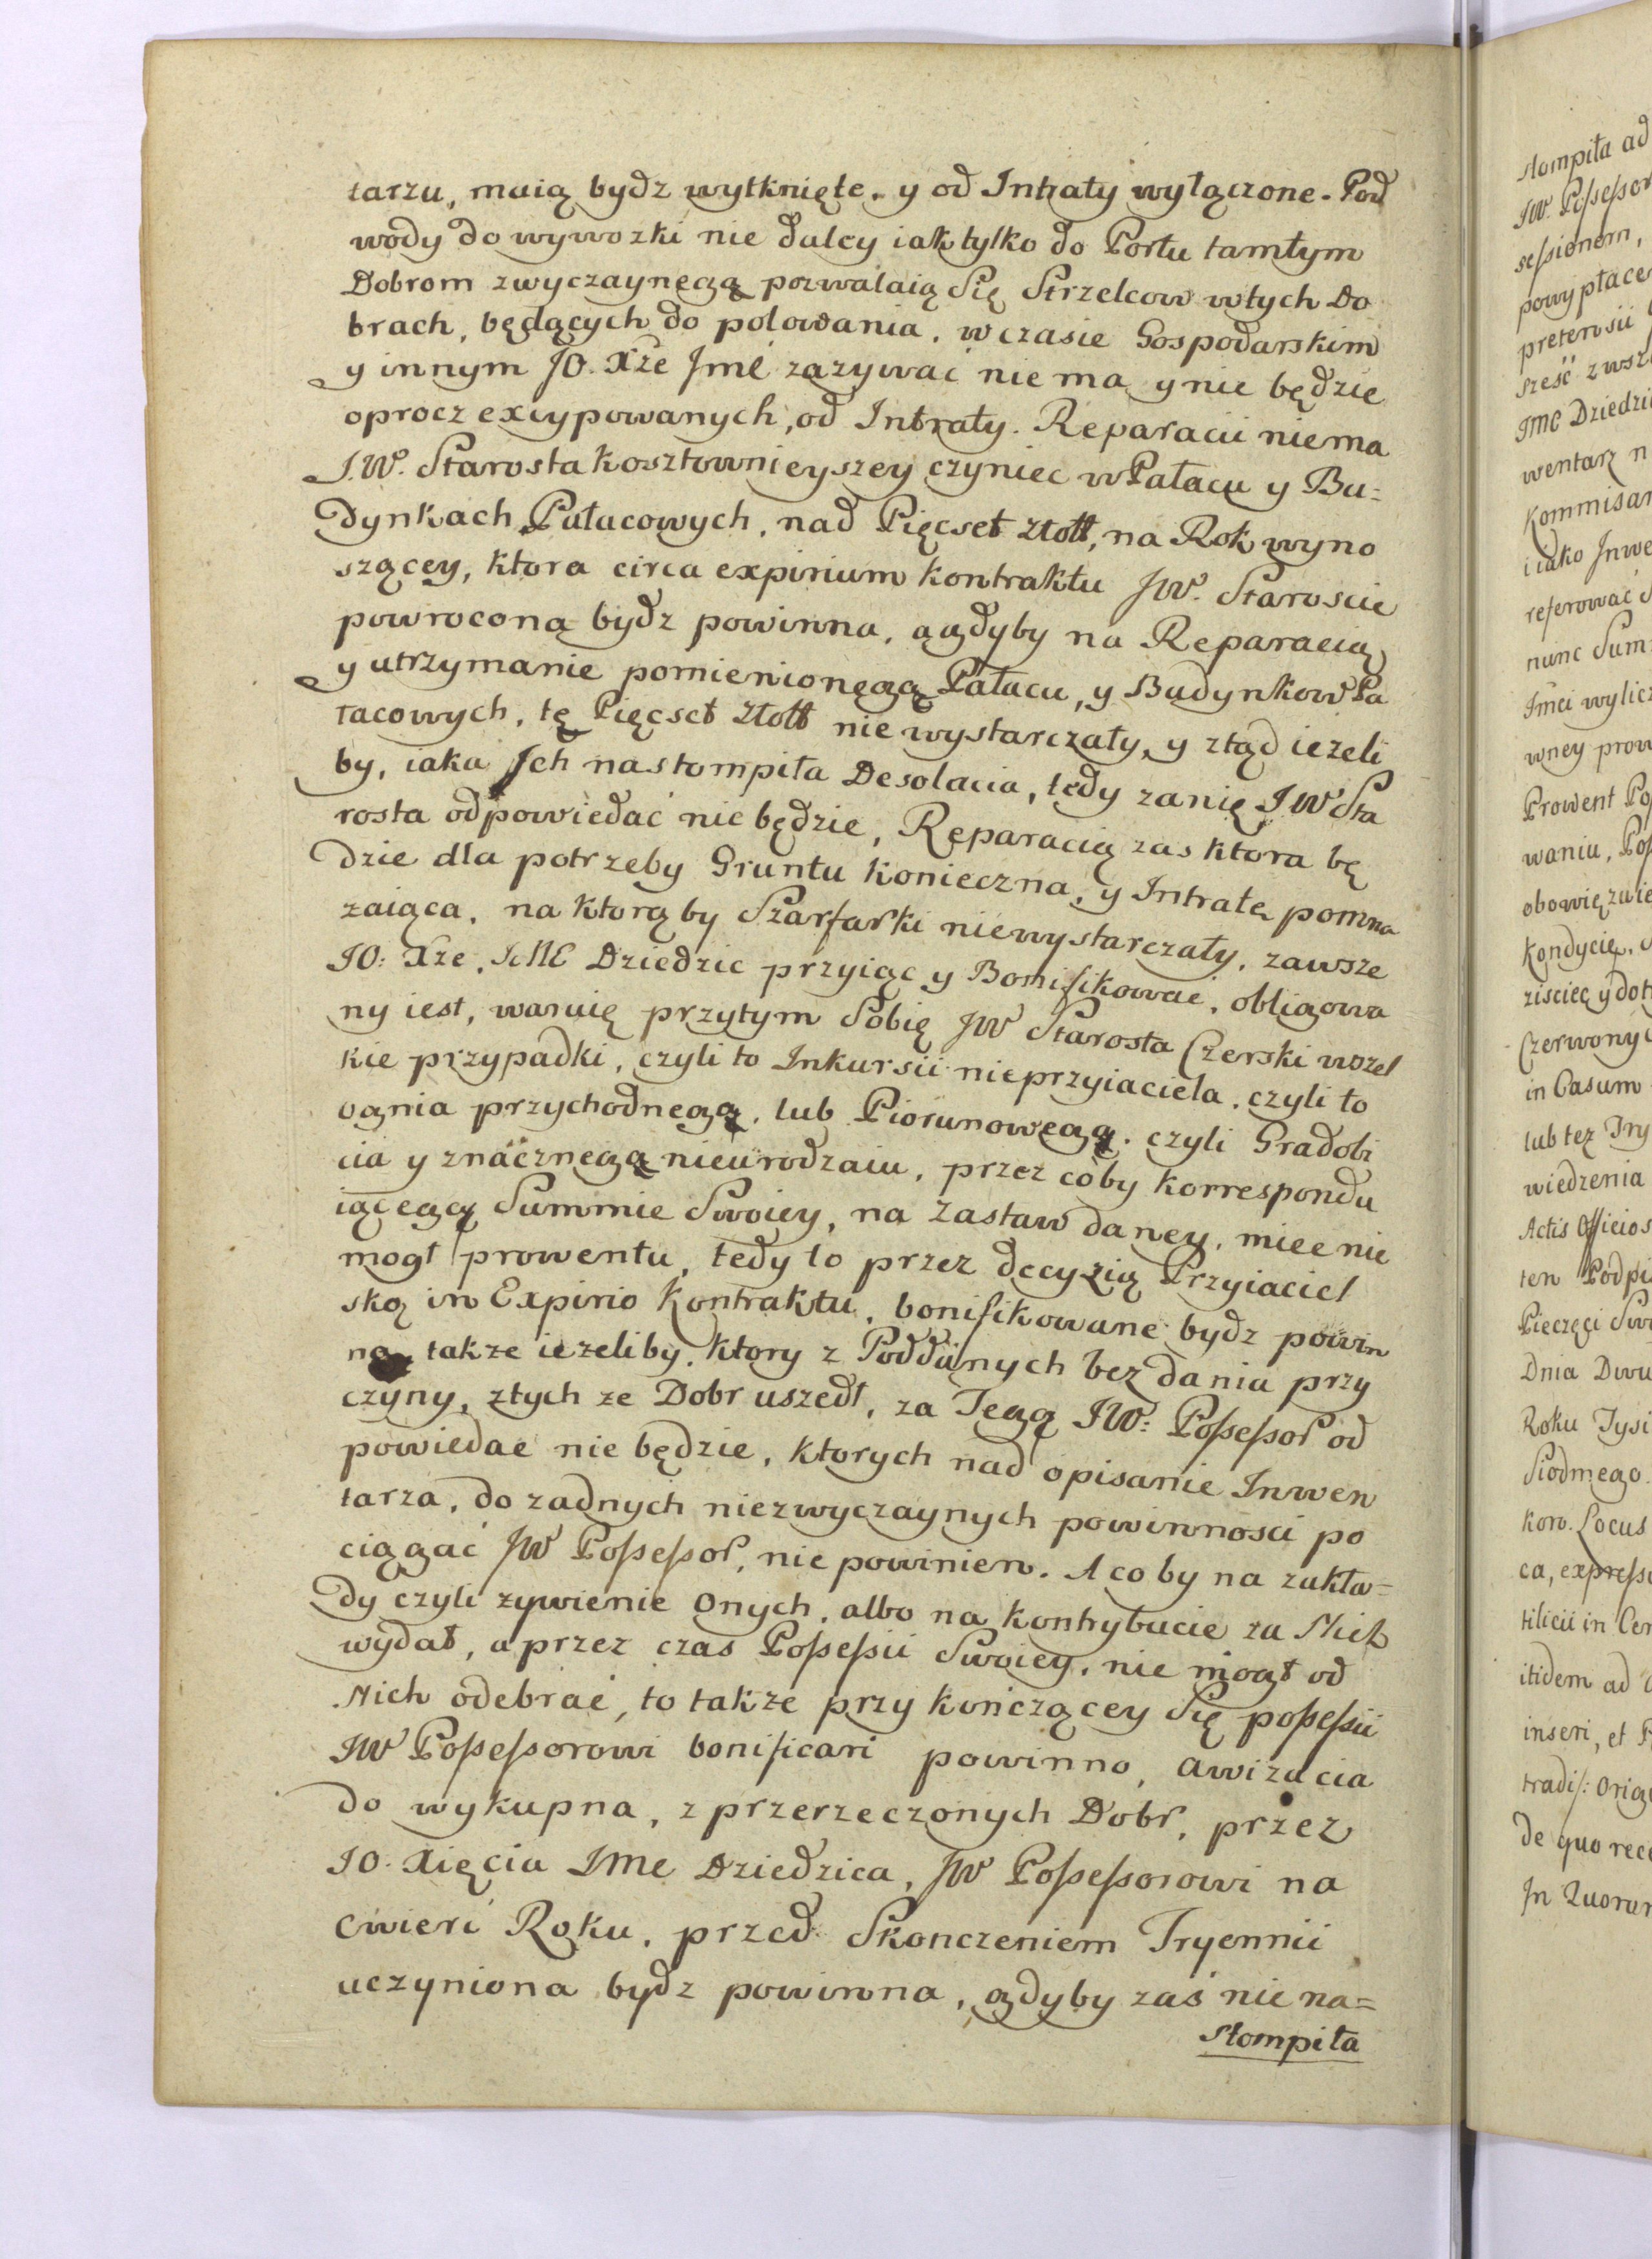 tarzu, maią bydz wytknięte. y od Intraty wyłączone. Pod
wody do wywozki nie daley iak tylko do Portu tamtym
Dobrom zwyczaynęgą pozwalaią Się Strzelcow wtych Do
brach, będących do polowania, w czasie Gospodarskim
y innym JO. Xże Jmć zazywać niema y nie będzie
oprocz excypowanych, od Intraty. Reparacii niema
J.W. Starosta kosztownieyszey czyniec w Pałacu y Bu=
dynkach Pałacowych, nad Pięcset złott, na Rok wyno
szącey, ktora circa expirium kontraktu JW. Staroscie
powroconą bydz powinna, a gdyby na Reparacią
y utrzymanie pomienionęgą Pałacu, y Budynkow Pa
łacowych, tę Pięcset złott nie wystarczały, y ztąd ieżeli
by, iaka Jch nastompiła Desolacia, tedy zanię JW Sta
rosta odpowiedać nie będzie, Ręparacią zas ktora bę
dzie dla potrzeby Gruntu konieczna, y Intratę pomna
zaiąca, na ktorą by Szarfarki niewystarczały, zawsze
JO: Xże. JMC Dziedzic przyiąc y Bonifikowac, obligowa
ny iest, waruię przytym Sobię JW Starosta Czerski wszel
kie przypadki, czyli to Inkursii nieprzyiaciela, czyli to
ognia przychodnegą, lub Piorunowęgą. czyli Gradobi
cia y znacznęgą nieurodzaiu, przez coby korrespondu
iącegą Summie Swoiey, na zastaw daney, miec nie
mogł prowentu, tedy to przez decyzią Przyiaciel
ską in Expirio kontraktu, bonifikowane bydz powin
no, takze iezeliby. ktory z Poddanych bez dania przy
czyny, ztych ze Dobr uszedł, za Tegą JW: Possessor od
powiedac nie będzie, ktorych nad opisanie Inwen
tarza, do zadnych niezwyczaynych powinnosci po
ciągać JW Possessor, nie powinien. A co by na zakła=
dy czyli zywienie Onych, albo na kontrybucie za Nich
wydał, a przez czas Possessii Swoiey, nie mogł od
Nich odebrać, to takze przy kończącey Się possessii
JW Possessorowi bonificari powinno, awizacia
do wykupna, z przerzeczonych Dobr, przez
JO. Xięcia JMc Dziedzica, JW Possessorowi na
cwierć Roku, przed Skonczeniem Tryennii
uczyniona bydz powinna, gdyby zaś nie na=
stompiła